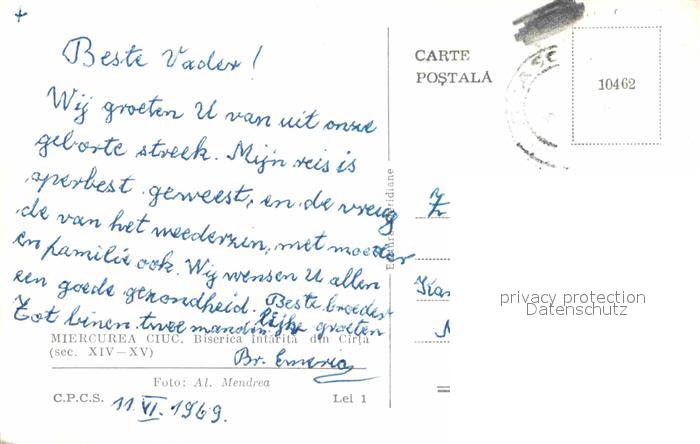 Beste Vader!
Wij groeten U van uit onze
geborte streek. Mijn reis is
sperbest geweest, en de vreug
de van het weederzin, met moeder
en familie ook. Wij wensen U allen
een goede gezondheid. Beste broeder
Tot binen twee manden. lijke groeten
Br. Emeric
MIERCUREA CIUC. Biserica întărită din Cîrța
(sec. XIV—XV)
Foto: Al. Mendrea
C.P.C.S.
Lei 1
11 VI. 1969.
CARTE
POȘTALĂ
10462
privacy protection
Datenschutz